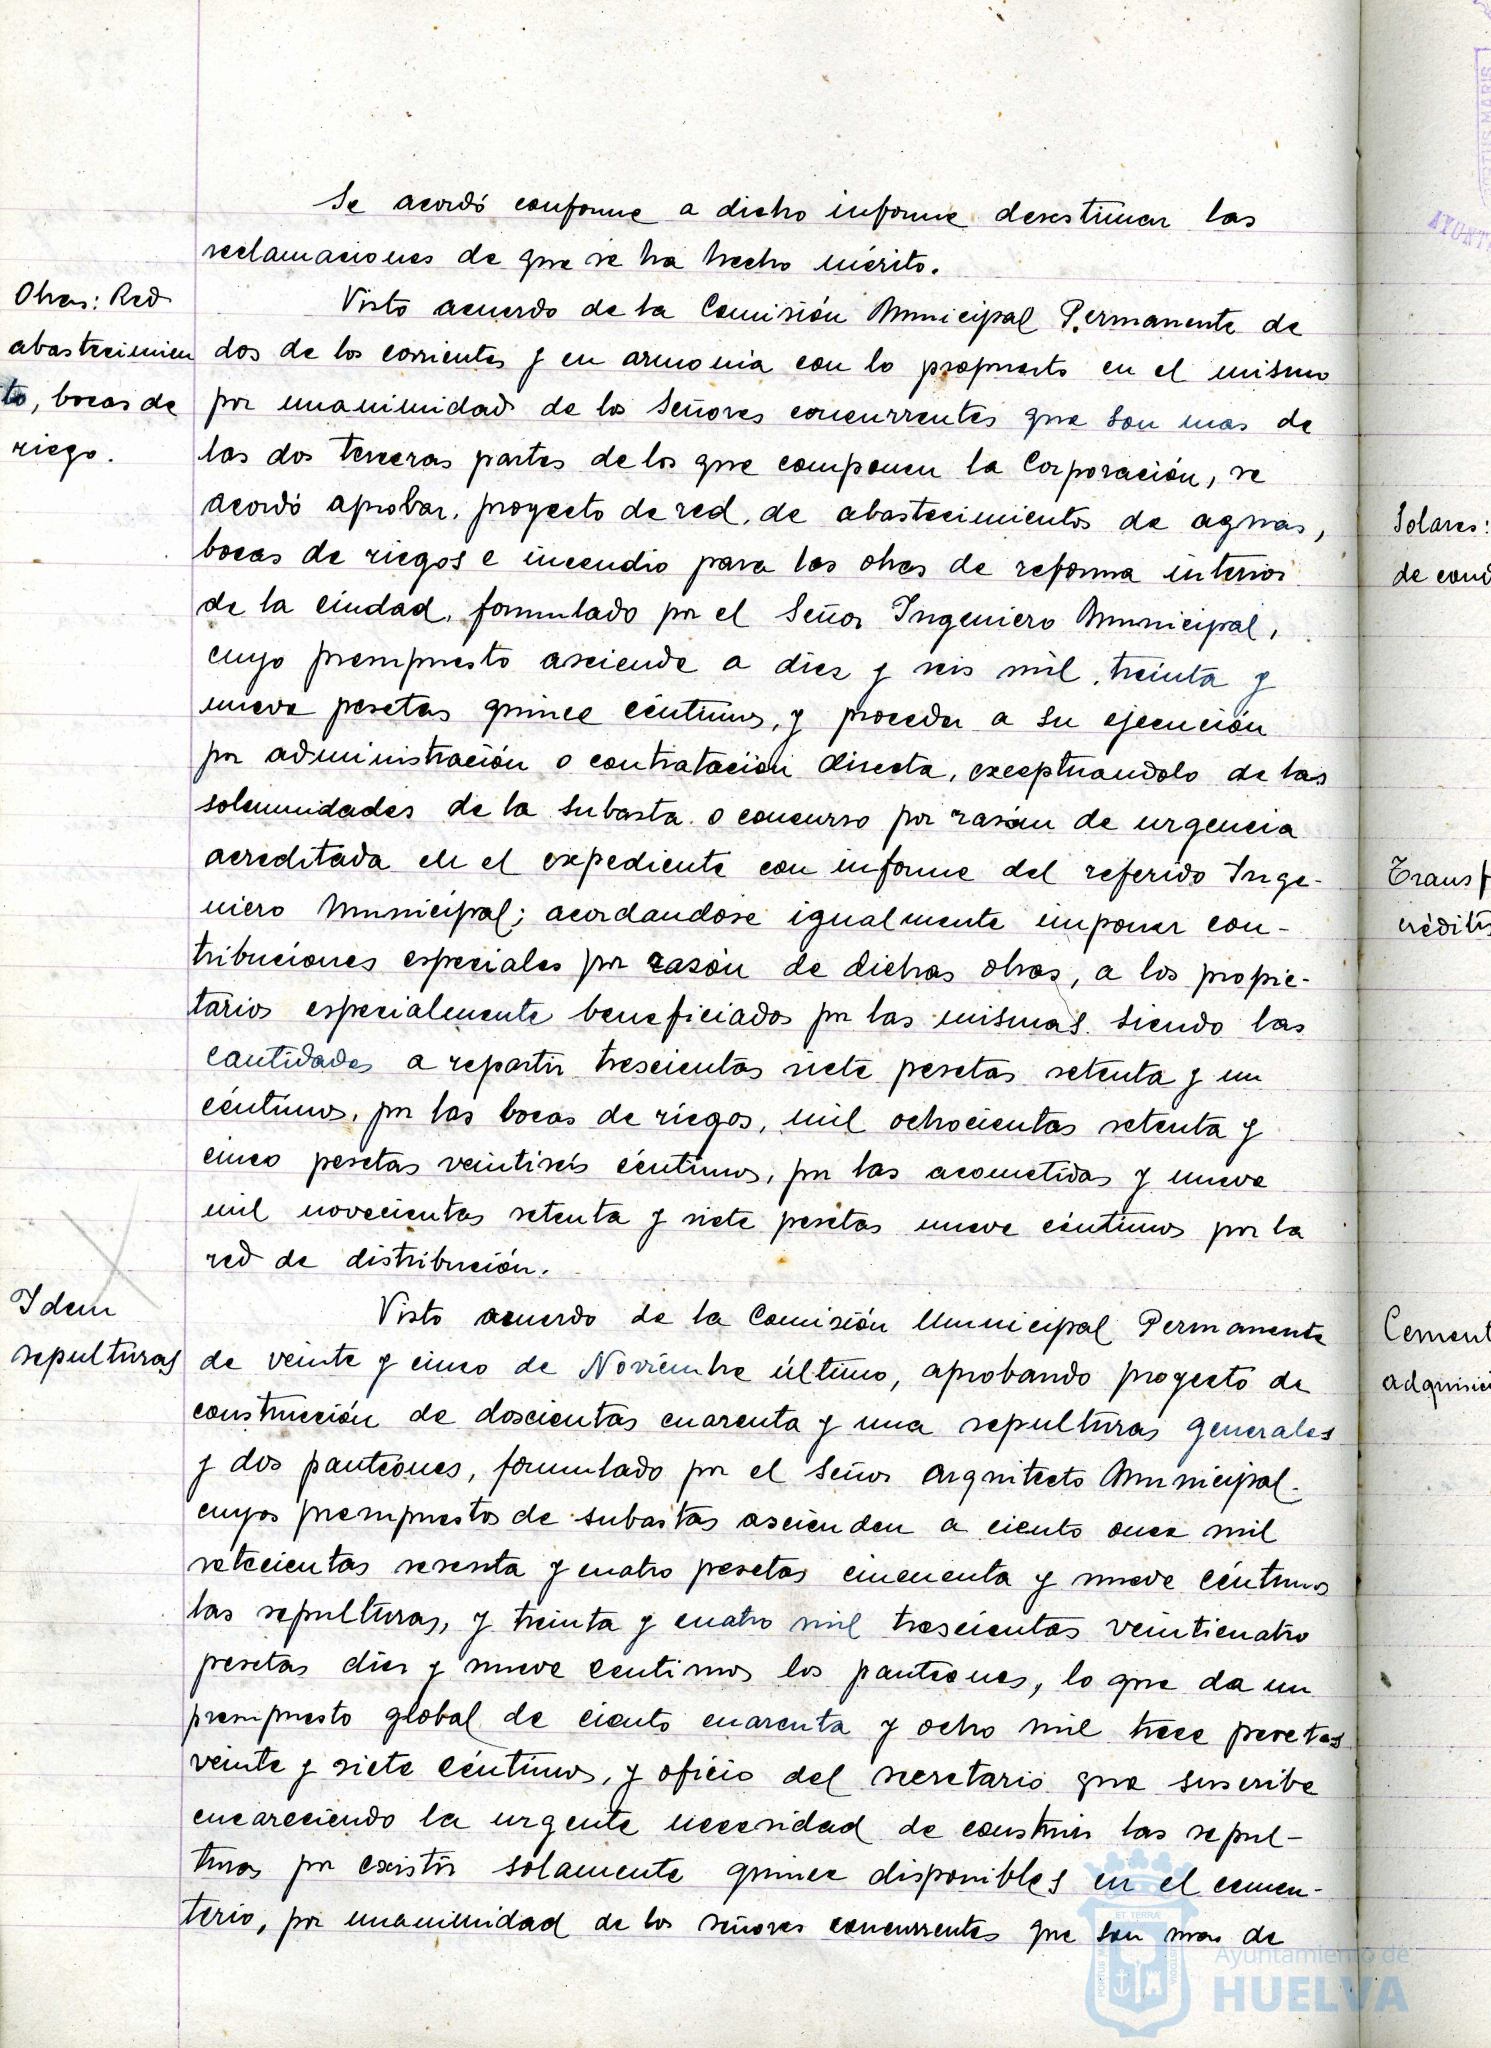 Se acordó conforme a dicho informe desestimar las
reclamaciones de que se ha hecho mérito.
Obras: Red
abastecimien
to, bocas de
riego.
Visto acuerdo de la Comisión Municipal Permanente de
dos de los corrientes y en armonia con lo propuesto en el mismo
por unanimidad de los Señores concurrentes que son mas de
las dos terceras partes de los que componen la Corporación, se
acordó aprobar, proyecto de red, de abastecimientos de aguas,
bocas de riegos e incendio para las obras de reforma interior
de la ciudad, formulado por el Señor Ingeniero Municipal,
cuyo presupuesto asciende a diez y seis mil, treinta y
nueve pesetas quince céntimos, y proceder a su ejecución
por administración o contratación directa, exceptuandolo de las
solemnidades de la subasta o concurso por razón de urgencia
acreditada en el expediente con informe del referido Inge-
niero Municipal; acordandose igualmente imponer con-
tribuciones especiales por razón de dichas obras, a los propie-
tarios especialmente beneficiados por las mismas. siendo las
cantidades a repartir trescientas siete pesetas setenta y un
céntimos, por las bocas de riegos, mil ochocientas setenta y
cinco pesetas veintiseis céntimos, por las acometidas y nueve
mil novecientas setenta y siete pesetas nueve céntimos por la
red de distribución.
Idem
sepulturas
Visto acuerdo de la Comisión Municipal Permanente
de veinte y cinco de Noviembre último, aprobando proyecto de
construcción de doscientas cuarenta y una sepulturas generales
y dos panteones, formulado por el Señor Arquitecto Municipal.
cuyos presupuestos de subastas ascienden a ciento once mil
setecientas sesenta y cuatro pesetas cincuenta y nueve céntimos
las sepulturas, y treinta y cuatro mil trescientas veinticuatro
pesetas diez y nueve centimos los panteones, lo que da un
presupuesto global de ciento cuarenta y ocho mil trece pesetas
veinte y siete céntimos, y oficio del secretario que suscribe
encareciendo la urgente necesidad de construir las sepul-
turas por existir solamente quince disponibles en el cemen-
terio, por unanimidad de los señores concurrentes que son mas de
Solares:
de cond
Transf
créditos
Cement
adquisici
ET TERRÆ
Ayuntamiento de
HUELVA